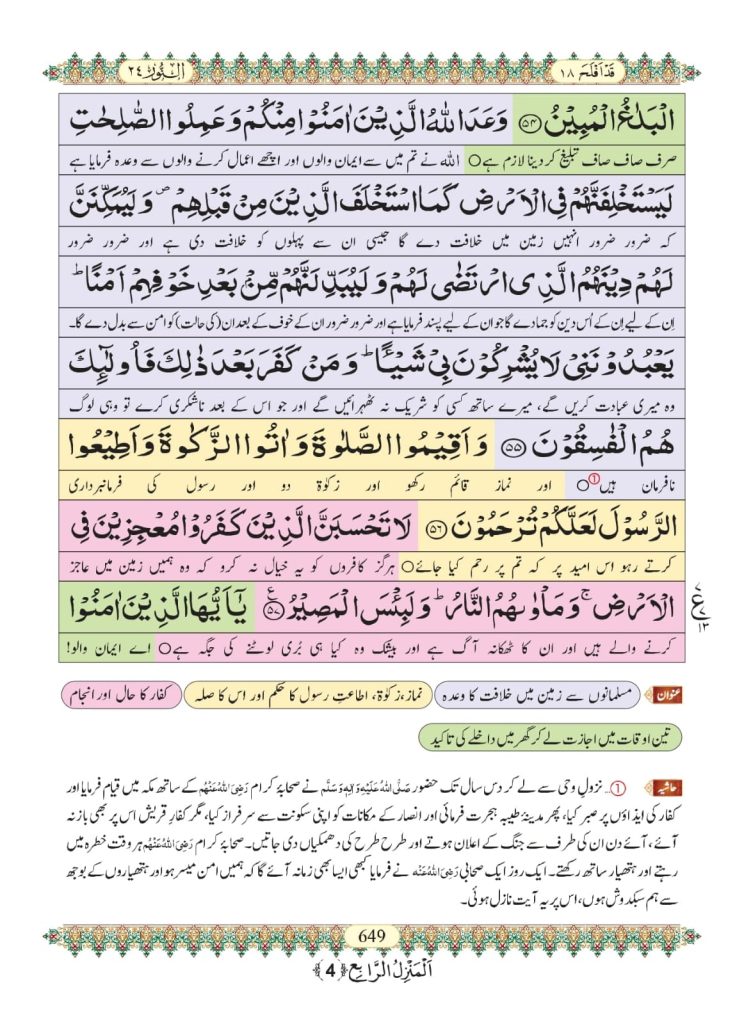 قَدْ اَفْلَحَ ١٨
اَلنُّوْر ٢٤
الْبَلٰغُ الْمُبِیْنُ ﴿۵۴﴾ وَعَدَ اللّٰهُ الَّذِیْنَ اٰمَنُوْا مِنْكُمْ وَ عَمِلُوا الصّٰلِحٰتِ
صرف صاف صاف تبلیغ کر دینا لازم ہے○ اللہ نے تم میں سے ایمان والوں اور اچھے اعمال کرنے والوں سے وعدہ فرمایا ہے
لَیَسْتَخْلِفَنَّهُمْ فِی الْاَرْضِ كَمَا اسْتَخْلَفَ الَّذِیْنَ مِنْ قَبْلِهِمْ ۪ وَ لَیُمَكِّنَنَّ
کہ ضرور ضرور انہیں زمین میں خلافت دے گا جیسی ان سے پہلوں کو خلافت دی ہے اور ضرور ضرور
لَهُمْ دِیْنَهُمُ الَّذِی ارْتَضٰى لَهُمْ وَ لَیُبَدِّلَنَّهُمْ مِّنْۢ بَعْدِ خَوْفِهِمْ اَمْنًا ؕ
اِن کے لیے اِن کے اُس دین کو جما دے گا جو ان کے لیے پسند فرمایا ہے اور ضرور ضرور ان کے خوف کے بعد ان (کی حالت) کو امن سے بدل دے گا۔
یَعْبُدُوْنَنِیْ لَا یُشْرِكُوْنَ بِیْ شَیْــٴًـا ؕ وَ مَنْ كَفَرَ بَعْدَ ذٰلِكَ فَاُولٰٓىٕكَ
وہ میری عبادت کریں گے، میرے ساتھ کسی کو شریک نہ ٹھہرائیں گے اور جو اس کے بعد ناشکری کرے تو وہی لوگ
هُمُ الْفٰسِقُوْنَ ﴿۵۵﴾ وَ اَقِیْمُوا الصَّلٰوةَ وَ اٰتُوا الزَّكٰوةَ وَ اَطِیْعُوا
نافرمان ہیں①○ اور نماز قائم رکھو اور زکوٰۃ دو اور رسول کی فرمانبرداری
الرَّسُوْلَ لَعَلَّكُمْ تُرْحَمُوْنَ ﴿۵۶﴾ لَا تَحْسَبَنَّ الَّذِیْنَ كَفَرُوْا مُعْجِزِیْنَ فِی
کرتے رہو اس امید پر کہ تم پر رحم کیا جائے○ ہرگز کافروں کو یہ خیال نہ کرو کہ وہ ہمیں زمین میں عاجز
الْاَرْضِ ۚ وَ مَاْوٰىهُمُ النَّارُ ؕ وَ لَبِئْسَ الْمَصِیْرُ ﴿۵۷﴾ یٰۤاَیُّهَا الَّذِیْنَ اٰمَنُوْا
ع ١٣
کرنے والے ہیں اور ان کا ٹھکانہ آگ ہے اور بیشک وہ کیا ہی بُری لوٹنے کی جگہ ہے○ اے ایمان والو!
عنوان مسلمانوں سے زمین میں خلافت کا وعدہ نماز، زکوٰۃ، اطاعتِ رسول کا حکم اور اس کا صلہ کفار کا حال اور انجام
تین اوقات میں اجازت لے کر گھر میں داخلے کی تاکید
حاشیہ ①… نزولِ وحی سے لے کر دس سال تک حضور صَلَّی اللہُ عَلَیْہِ وَاٰلِہٖ وَسَلَّم نے صحابۂ کرام رَضِیَ اللہُ عَنْہُم کے ساتھ مکہ میں قیام فرمایا اور
کفار کی ایذاؤں پر صبر کیا، پھر مدینۂ طیبہ ہجرت فرمائی اور انصار کے مکانات کو اپنی سکونت سے سرفراز کیا، مگر کفارِ قریش اس پر بھی باز نہ
آئے، آئے دن ان کی طرف سے جنگ کے اعلان ہوتے اور طرح طرح کی دھمکیاں دی جاتیں۔ صحابۂ کرام رَضِیَ اللہُ عَنْہُم ہر وقت خطرہ میں
رہتے اور ہتھیار ساتھ رکھتے۔ ایک روز ایک صحابی رَضِیَ اللہُ عَنْہُ نے فرمایا کبھی ایسا بھی زمانہ آئے گا کہ ہمیں امن میسر ہو اور ہتھیاروں کے بوجھ
سے ہم سبکدوش ہوں، اس پر یہ آیت نازل ہوئی۔
649
اَلْمَنْزِلُ الرَّابِع ﴿4﴾